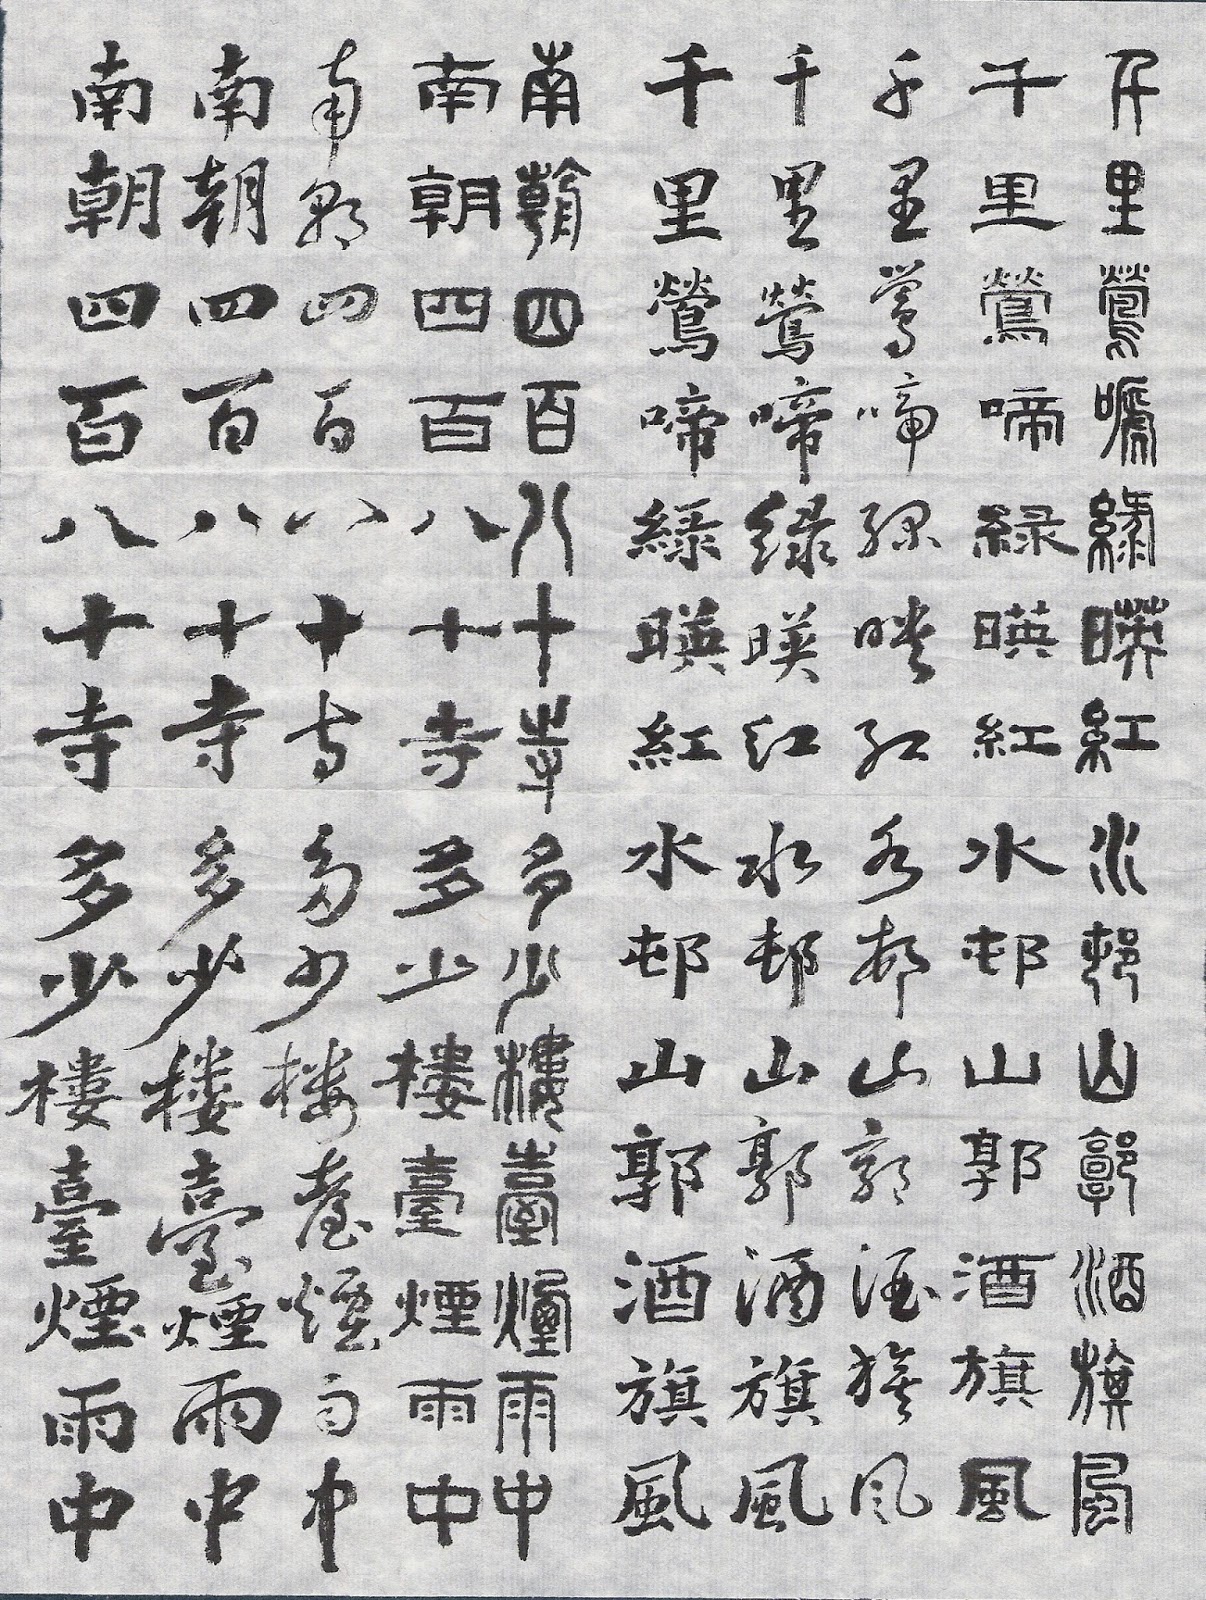 千里鶯啼綠暎紅水邨山郭酒旗風
千里鶯啼緑暎紅水邨山郭酒旗風
千里鶯啼綠暎紅水邨山郭酒旗風
千里鶯啼緑暎紅水邨山郭酒旗風
千里鶯啼緑暎紅水邨山郭酒旗風
南朝四百八十寺多少樓臺煙雨中
南朝四百八十寺多少樓臺煙雨中
南朝四百八十寺多少楼臺煙雨中
南朝四百八十寺多少楼臺煙雨中
南朝四百八十寺多少樓臺煙雨中